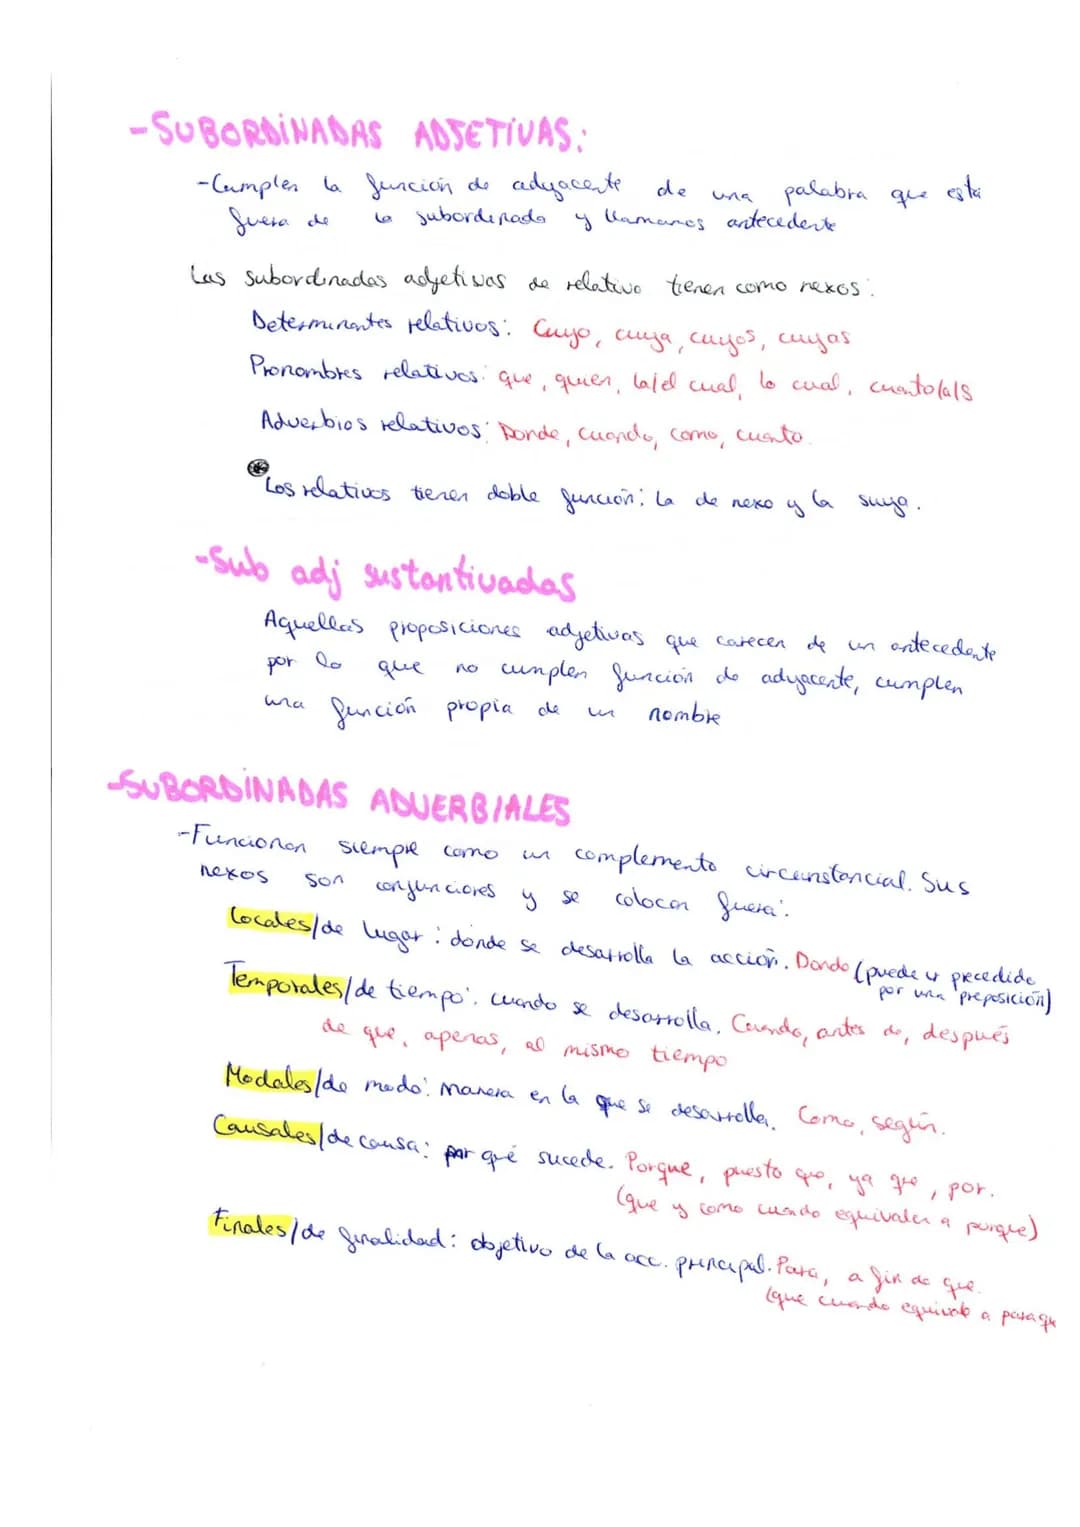 -SUBORDINADAS ADJETIVAS:
-Cumplen la función de adyacente de una palabra que está
fuera de la subordinada y llamamos antecedente
Las subordinadas adjetivas de relativo tienen como nexos:
Determinantes relativos: Cuyo, cuya, cuyos, cuyas
Pronombres relativos: que, quien, la/el cual, lo cual, cuanto/a/s
Adverbios relativos: Donde, cuando, como, cuanto.
Los relativos tienen doble función: la de nexo y la suya.
-Sub adj sustantivadas
Aquellas proposiciones adjetivas que carecen de un antecedente
por lo que no cumplen función de adyacente, cumplen
una función propia de un nombre
-SUBORDINADAS ADVERBIALES
-Funcionan siempre como un complemento circunstancial. Sus
nexos son conjunciones y se colocan fuera:
Locales/de lugar: donde se desarrolla la acción. Donde (puede ir precedido
por una preposición)
Temporales/de tiempo: cuando se desarrolla. Cuando, antes de, después
de que, apenas, al mismo tiempo
Modales/de modo: manera en la que se desarrolla. Como, según.
Causales/de causa: por qué sucede. Porque, puesto que, ya que, por.
(que y como cuando equivalen a porque)
Finales/de finalidad: objetivo de la acc. principal. Para, a fin de que.
(que cuando equivale a para qu